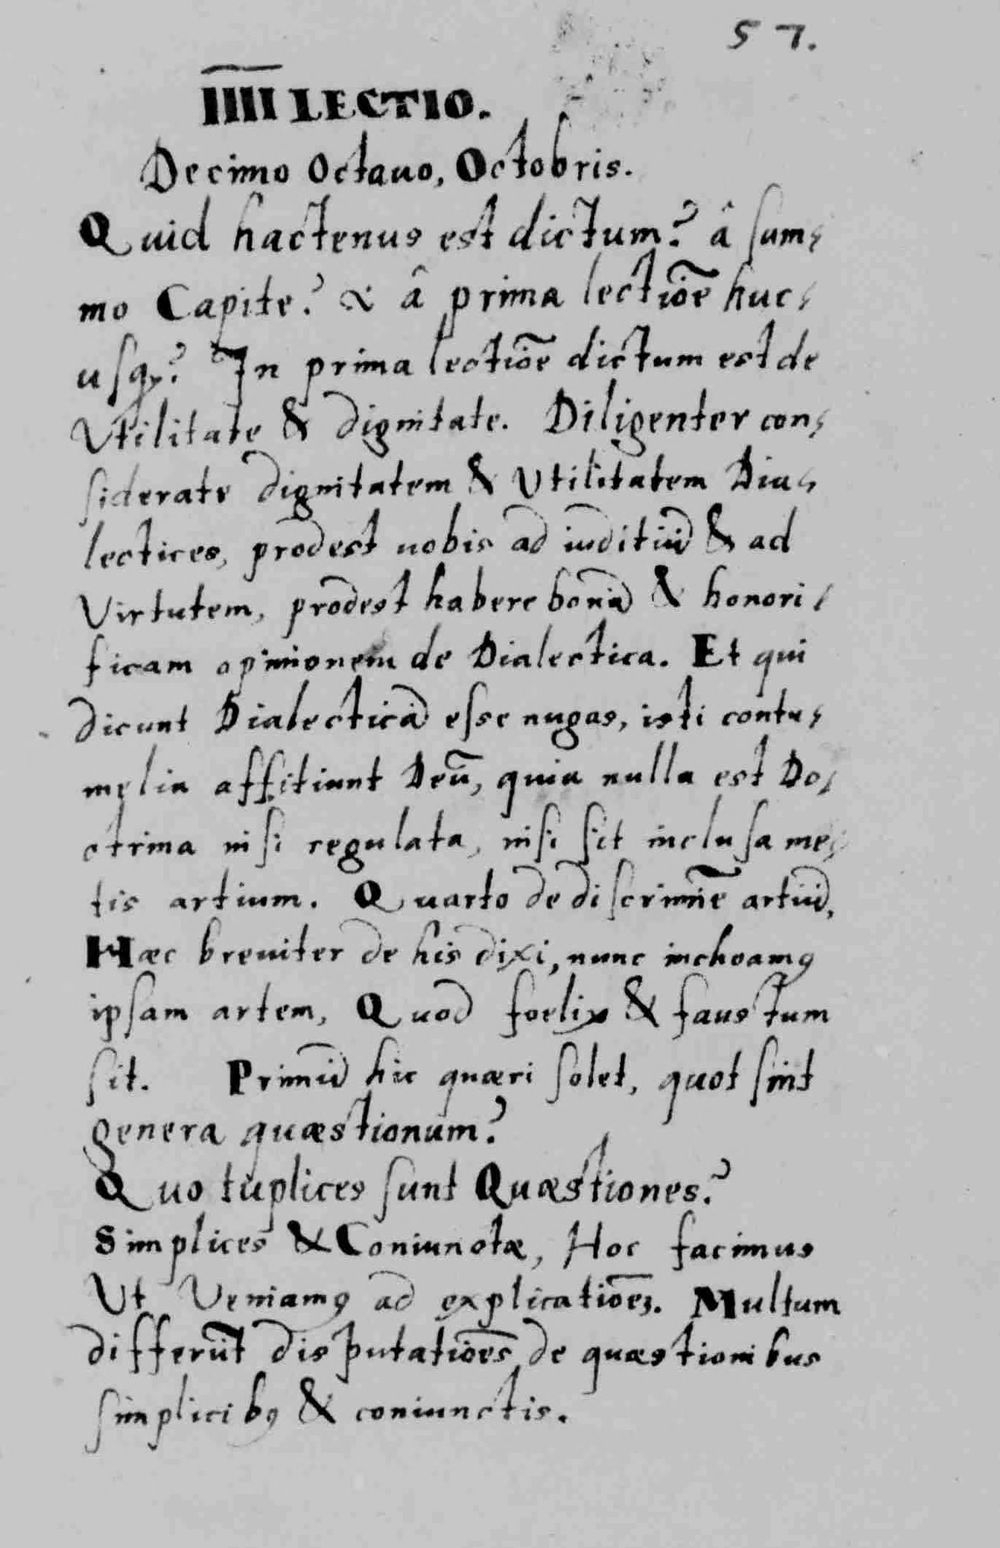 57.
IIII LECTIO.
Decimo Octauo, Octobris.
Quid hactenus est dictum? â sum-
mo Capite? & â prima lectiōe huc-
usq;? In prima lectiōe dictum est de
Vtilitate & dignitate. Diligenter con-
siderate dignitatem & Vtilitatem Dia-
lectices, prodest nobis ad iuditiū & ad
Virtutem, prodest habere bonā & honori-
ficam opinionem de Dialectica. Et qui
dicunt Dialecticā esse nugas, isti contu-
melia affitiunt Deū, quia nulla est Do-
ctrina nisi regulata, nisi sit inclusa me-
tis artium. Quarto de discrimīe artiū,
Hæc breuiter de his dixi, nunc inchoamꝰ
ipsam artem, Quod foelix & faustum
sit. Primū hic quæri solet, quot sint
genera quæstionum?
Quotuplices sunt Quæstiones?
Simplices & Coniunctæ, Hoc facimus
Ut Veniamꝰ ad explicatiōeȝ. Multum
differūt disputatiōes de quæstionibus
simplicibꝰ & coniunctis.